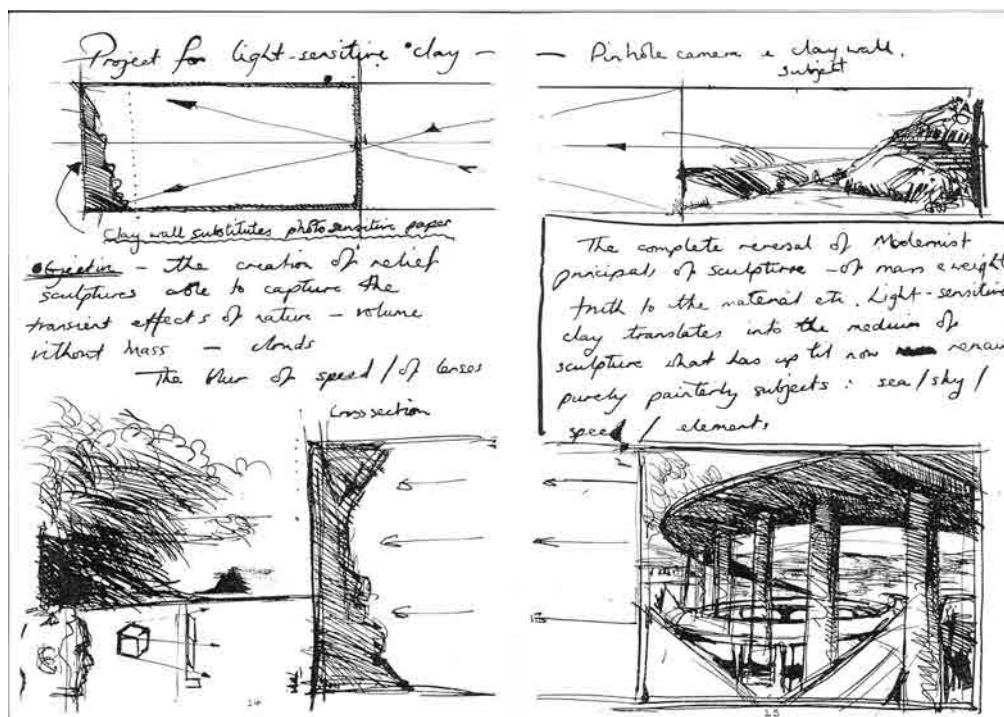 Project for light-sensitive clay —
— Pinhole camera & clay wall.
subject
Clay wall substitutes photosensitive paper
Objective – the creation of relief
sculptures able to capture the
transient effects of nature – volume
without mass – clouds
The blur of speed / of lenses
Cross section
14
The complete reversal of Modernist
principals of sculpture – of mass & weight
truth to the material etc. Light-sensitive
clay translates into the medium of
sculpture what has up til now remain
purely painterly subjects : sea / sky /
speed / elements
15